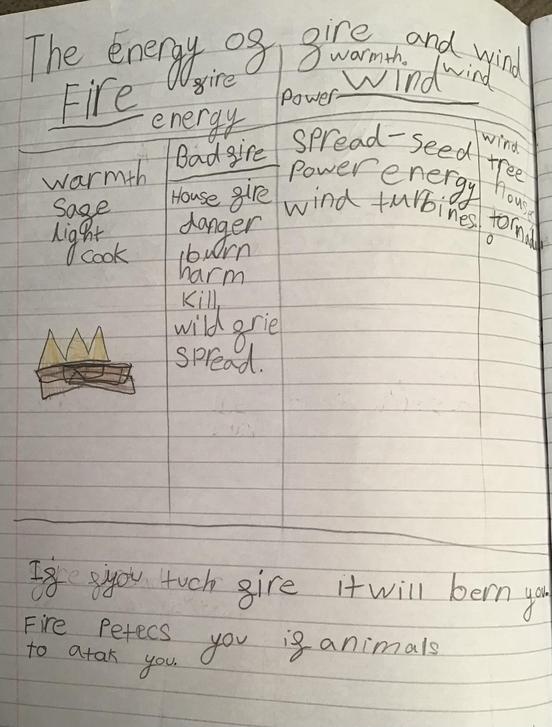 The energy of fire and wind
fire
warmth.
wind
Fire
Power
Wind
energy
warmth
Safe
light
cook
Bad fire
House fire
danger
burn
harm
Kill
wild frie
spread.
spread-seed
Power energy
wind turbines.
wind
tree
house
If you tuch fire it will bern you.
Fire Petecs you if animals
to atak you.